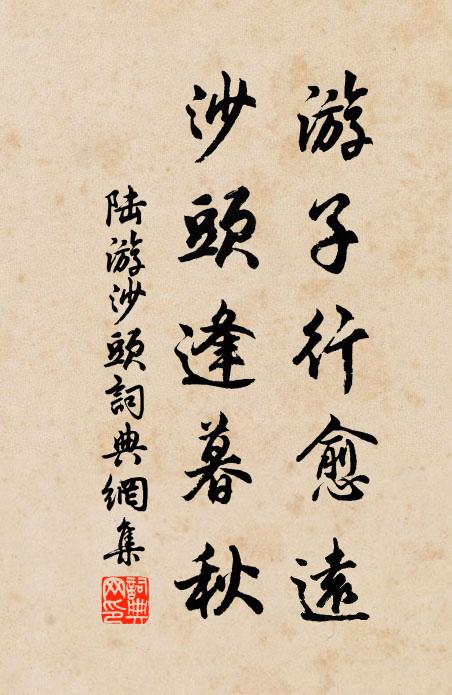 游子行愈遠
沙頭逢暮秋
陆游沙頭詞典網集
詞典網印